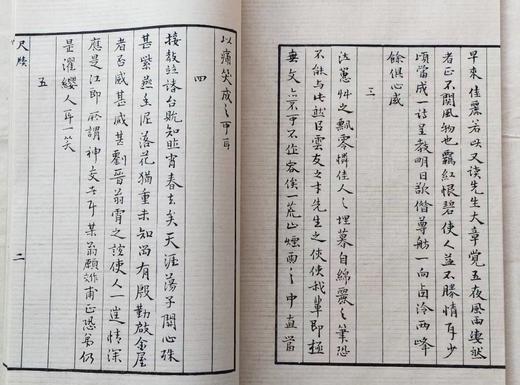 早來佳麗若此又讀先生大章覺五夜風雨凄然
者正不關風物也羈紅恨碧使人益不勝情耳少
頃當成一詩呈教明日欲借尊舫一向西泠兩峰
餘俱心感
三
泣蕙艸之飄零憐佳人之埋暮自綿麗之筆恐
不能與此然以雲友之才先生之俠使我輩即極
無文亦不可不作容俟一荒山煙雨之中直當
以痛哭成之可耳
四
接教並諸台貺知昨宵春去矣天涯蕩子關心殊
甚紫燕香泥落花猶重未知尚有殷勤啟金屋
者否感甚感甚劉晉翁霄之誼使人一往情深
應是江郎所謂神交者耳某翁願作甫正恐弟仍
是濯纓人耳一笑
五
尺牘
二